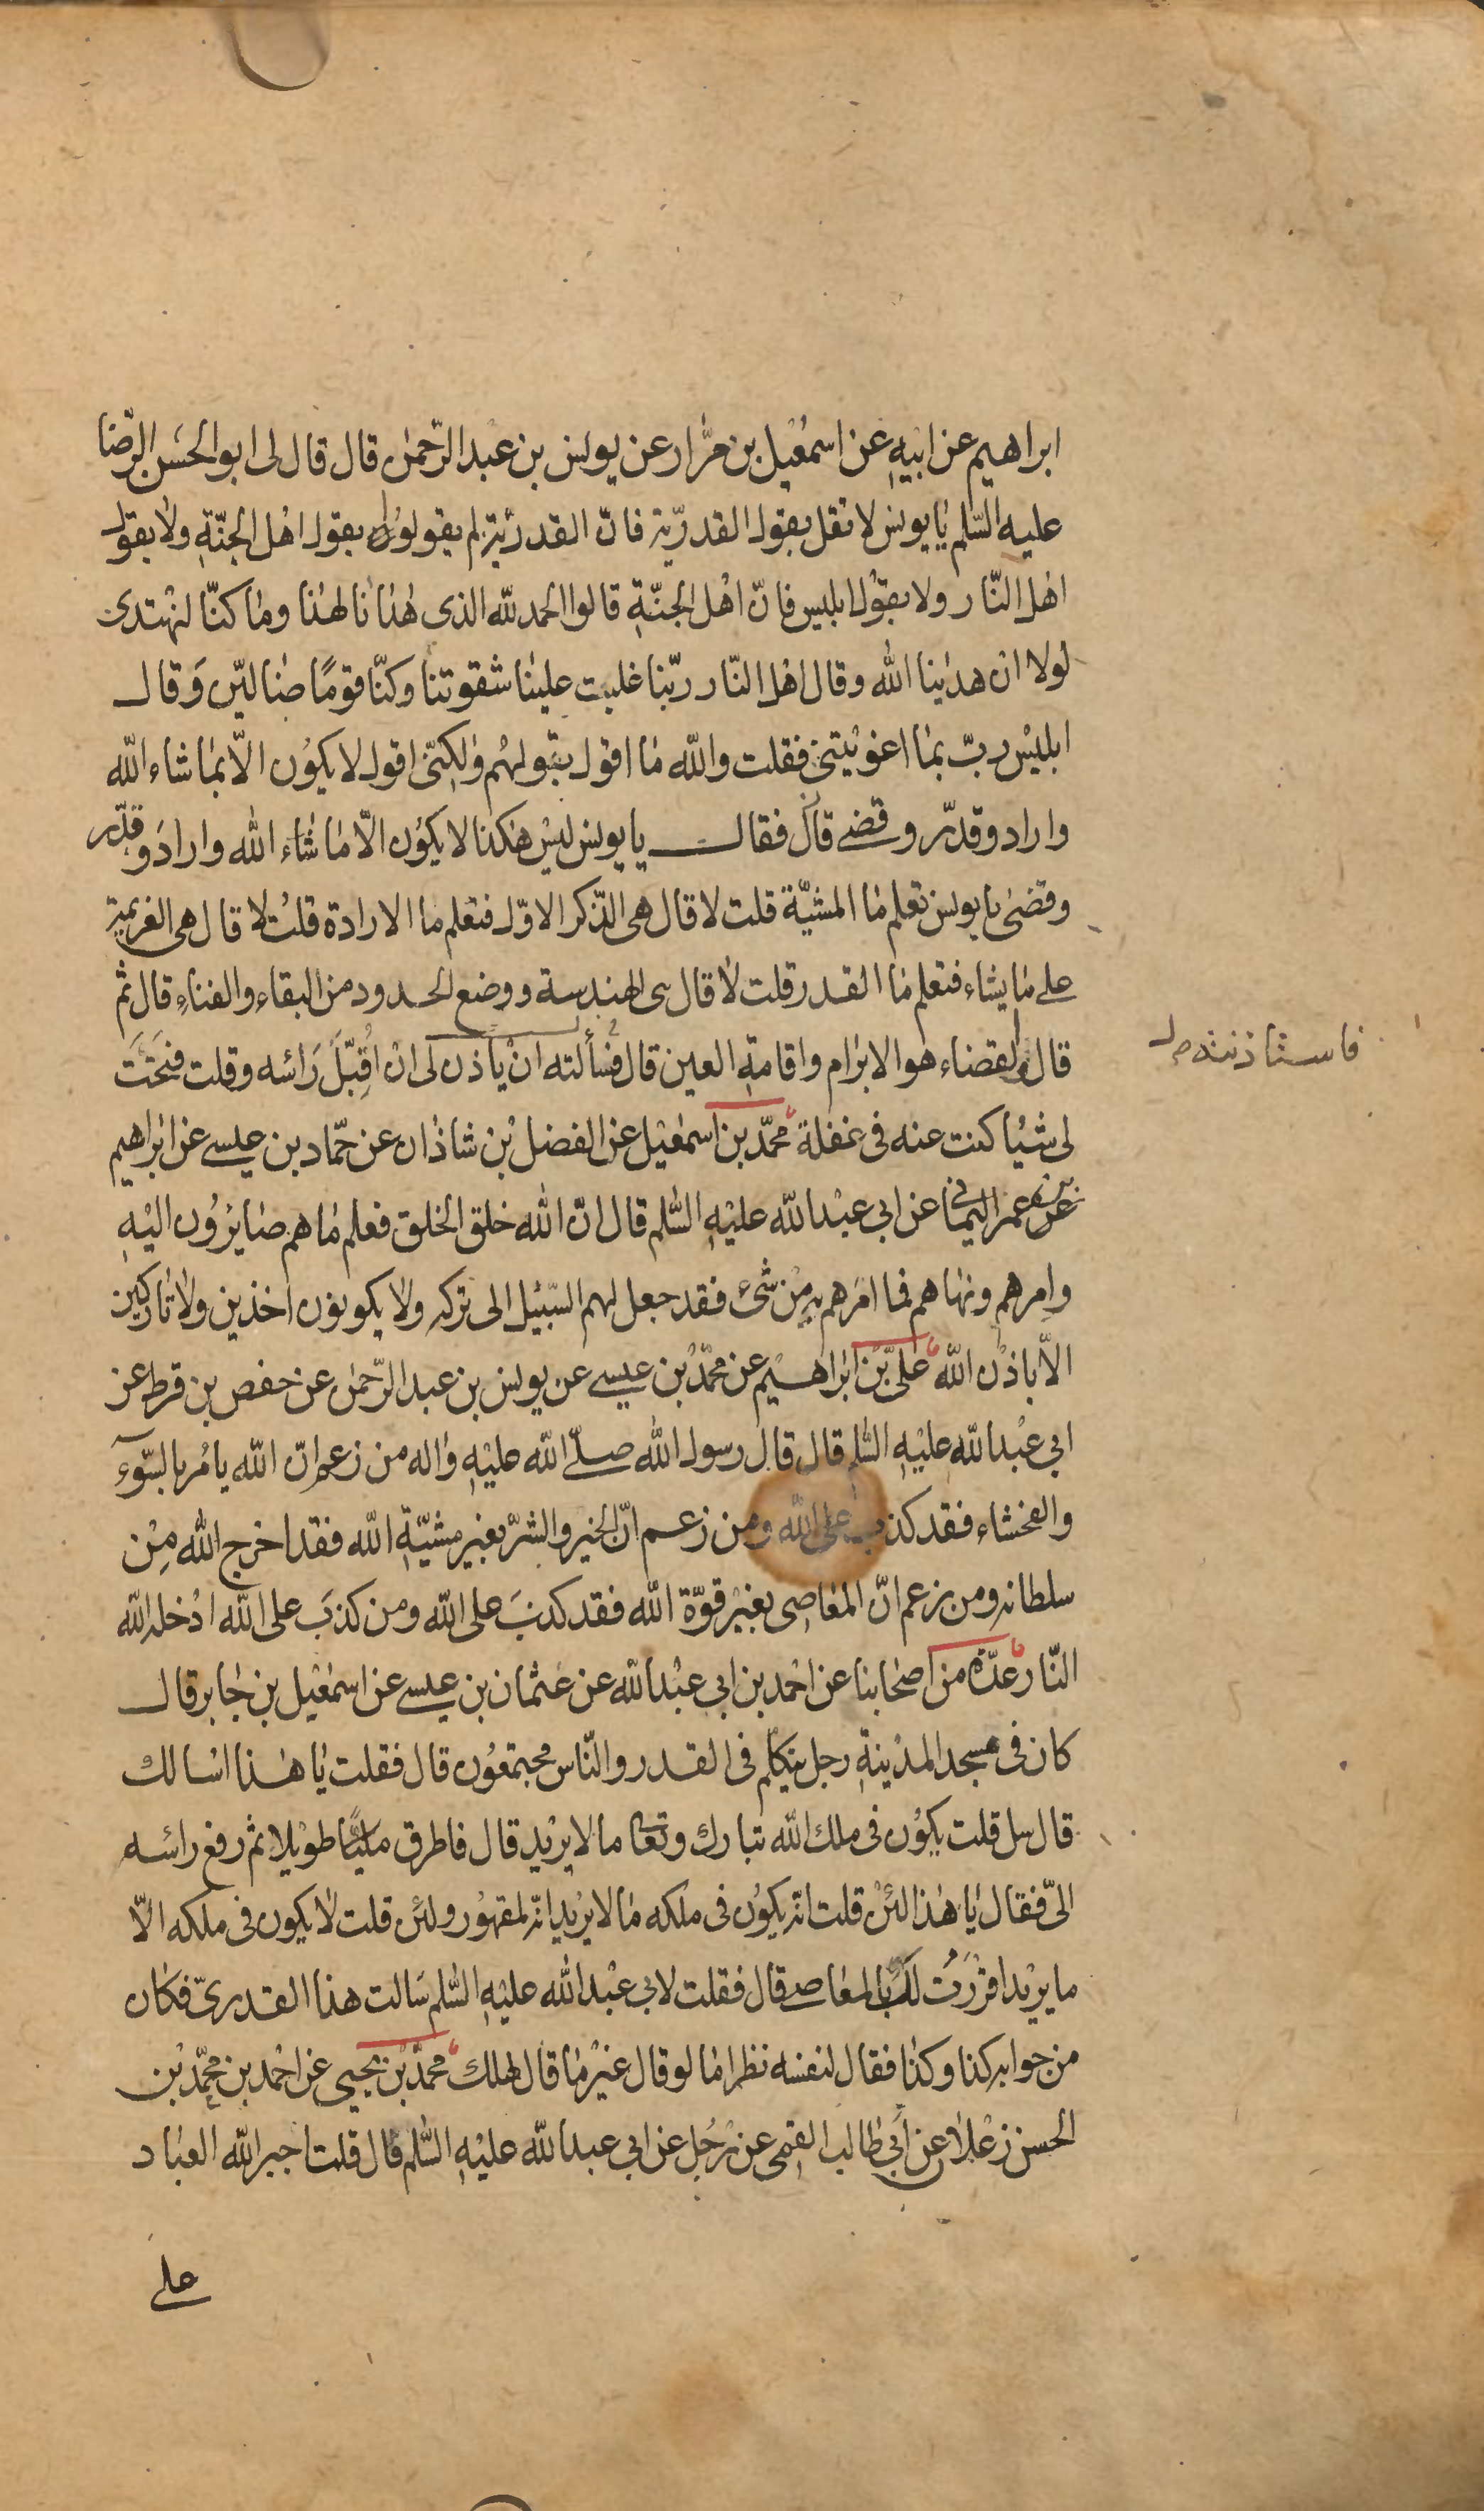 ابراهيم عن ابيه عن اسمعيل بن مرّار عن يونس بن عبد الرّحمن قال قال لى ابو الحسن الرّضا
عليه السّلم يا يونس لا تقل بقول القدريّة فانّ القدريّة لم يقولوا بقول اهل الجنّة ولا بقول
اهل النّار ولا بقول ابليس فانّ اهل الجنّة قالوا الحمد لله الذى هدانا لهذا وما كنّا لنهتدى
لولا ان هدينا الله وقال اهل النّار ربّنا غلبت علينا شقوتنا وكنّا قومًا ضالّين وَقال
ابليس ربّ بما اغويتنى فقلت والله ما اقول بقولهم ولكنّى اقول لا يكون الّا بما شاء الله
واراد وقدّر وقضى قال فقال يا يونس ليس هكذا لا يكون الّا ما شاء الله واراد وقدّر
وقضى يا يونس تعلم ما المشيّة قلت لا قال هى الذّكر الاوّل فتعلم ما الارادة قلت لا قال هى العزيمة
على ما يشاء فتعلم ما القدر قلت لا قال هى الهندسة ووضع الحدود من البقاء والفناء قال ثم
قال والقضاء هو الابرام واقامة العين قال فسألته ان ياذن لى ان اُقبّلَ رَاسه وقلت فتحتَ
فاستاذنته
لى شيئا كنت عنه فى غفلة محمّد بن اسمعيل عن الفضل بن شاذان عن حمّاد بن عيسى عن ابراهيم
بن عمر اليمانى عن ابي عبد الله عليه السّلم قال انّ الله خلق الخلق فعلم ما هم صايرون اليه
وامرهم ونهاهم فما امرهم به من شىء فقد جعل لهم السّبيل الى تركه ولا يكونون اخذين ولا تاركين
الّا باذن الله علىّ بن ابراهيم عن محمّد بن عيسى عن يونس بن عبد الرّحمن عن حفص بن قرط عن
ابي عبد الله عليه السّلم قال قال رسول الله صلّى الله عليه واله من زعم انّ الله يامر بالسّوء
والفحشاء فقد كذب على الله ومن زعم انّ الخير والشرّ بغير مشيّة الله فقد اخرج الله مِن
سلطانه ومن زعم انّ المعاصى بغير قوّة الله فقد كذبَ على الله ومن كذبَ على الله ادخله الله
النّار عدّة من اصحابنا عن احمد بن ابي عبد الله عن عثمان بن عيسى عن اسمعيل بن جابر قال
كان فى مسجد المدينة رجل يتكلم فى القدر والنّاس مجتمعون قال فقلت يا هذا اسالك
قال سل قلت يكون فى ملك الله تبارك وتعا ما لا يريد قال فاطرق مليّا طويلا ثم رفع راسه
الىّ فقال يا هذا لئن قلت انّه يكون فى ملكه ما لا يريد انّه لمقهور ولئن قلت لا يكون فى ملكه الّا
ما يريد اقررت لك بالمعاصى قال فقلت لابي عبد الله عليه السّلم سَالت هذا القدرىّ فكان
من جوابه كذا وكذا فقال لنفسه نظر اما لو قال غير ما قال لهلك محمّد بن يحيى عن احمد بن محمّد بن
الحسن زعلان عن أبي طالب القمى عن رَجُل عن ابي عبد الله عليه السّلم قال قلت اجبر الله العباد
على